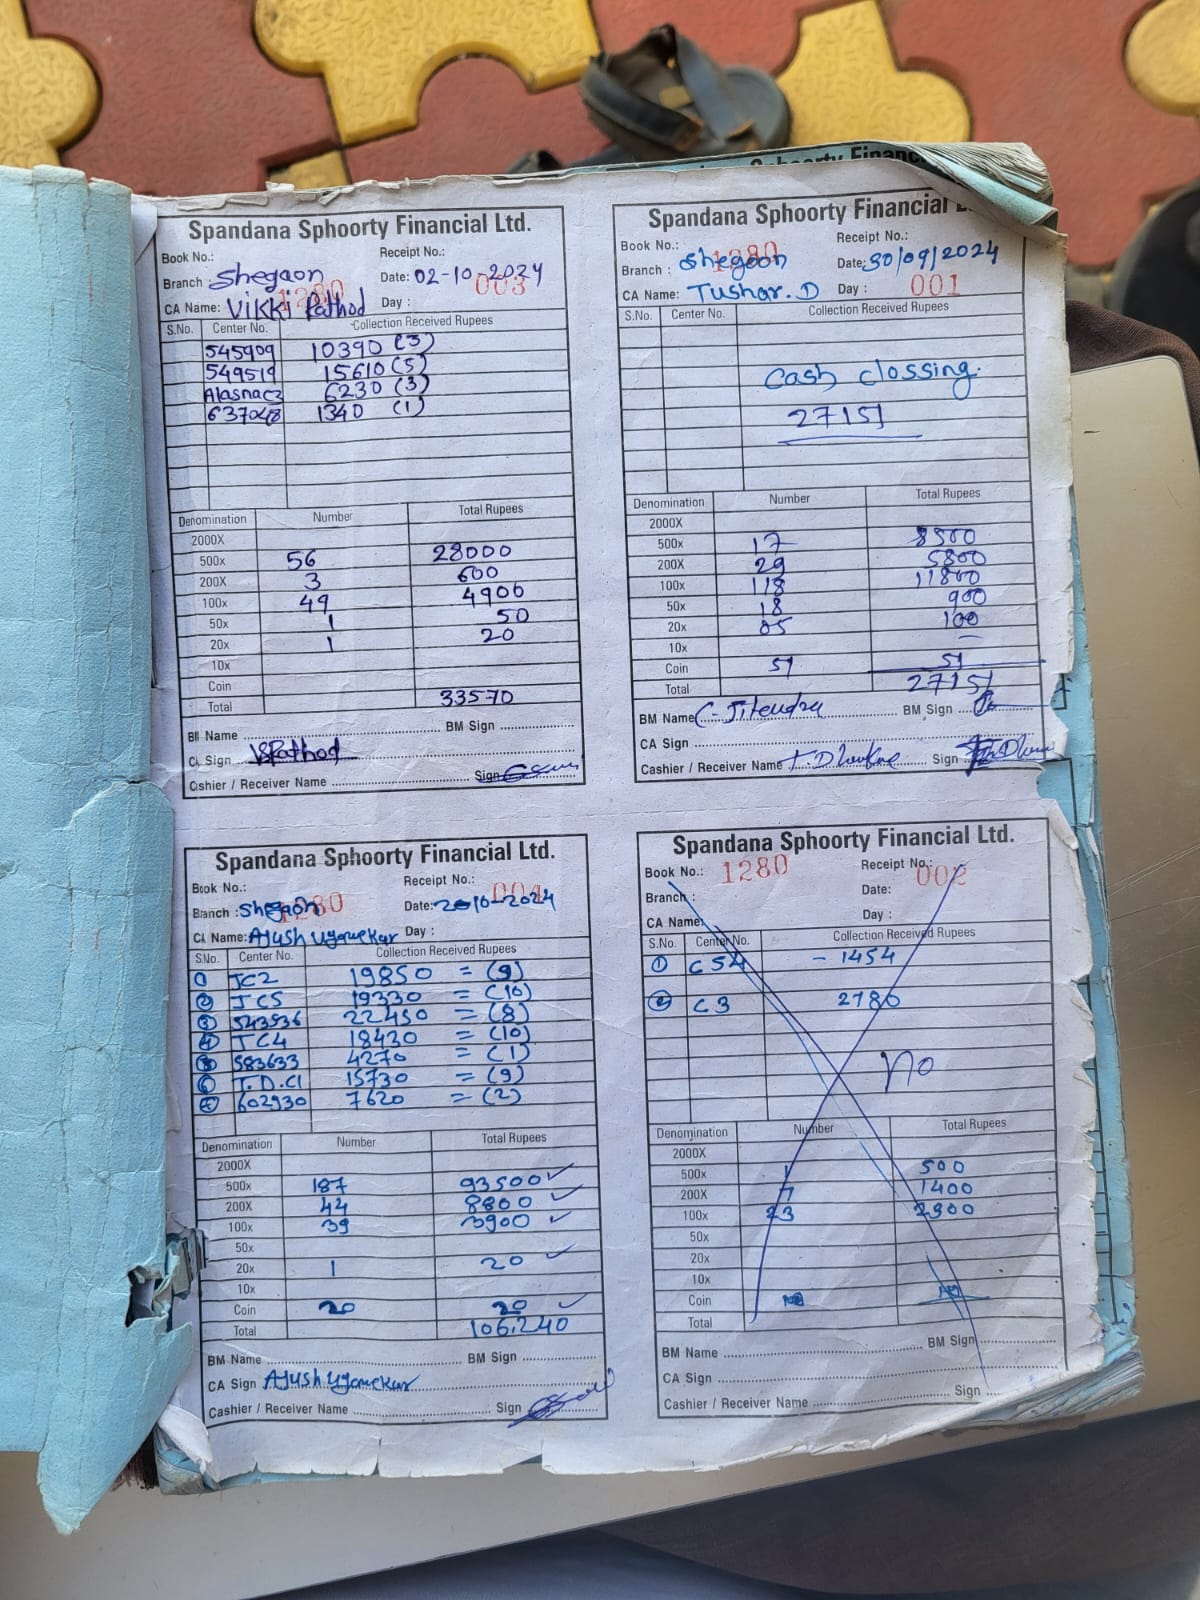 Spandana Sphoorty Financial Ltd.
Book No.: Receipt No.:
1280 003
Branch : Shegaon Date: 02-10-2024
CA Name: Vikki Rathod Day :
S.No. Center No. Collection Received Rupees
545909 10390 (3)
549519 15610 (5)
Alasnac3 6230 (3)
637048 1340 (1)
Denomination Number Total Rupees
2000X
500x 56 28000
200X 3 600
100x 49 4900
50x 1 50
20x 1 20
10x
Coin
Total 33570
Name BM Sign
Sign VSRathod
Cashier / Receiver Name Sign
Spandana Sphoorty Financial
Book No.: Receipt No.:
1280 001
Branch : Shegaon Date: 30/09/2024
CA Name: Tushar. D Day :
S.No. Center No. Collection Received Rupees
Cash clossing.
27151
Denomination Number Total Rupees
2000X
500x 17 8500
200X 29 5800
100x 118 11800
50x 18 900
20x 05 100
10x —
Coin 51 51
Total 27151
BM Name C. Jitendra BM Sign
CA Sign
Cashier / Receiver Name Sign
Spandana Sphoorty Financial Ltd.
Book No.: Receipt No.:
1280 004
Branch : Shegaon Date: 2-10-2024
CA Name: Ajush Ugamekar Day :
S.No. Center No. Collection Received Rupees
1 JC2 19850 = (9)
2 JC5 19330 = (10)
3 543536 22450 = (8)
4 JC4 18430 = (10)
5 583633 4270 = (1)
6 T.D.C1 15730 = (9)
7 602930 7620 = (2)
Denomination Number Total Rupees
2000X
500x 187 93500
200X 44 8800
100x 39 3900
50x
20x 1 20
10x
Coin 20 20
Total 106,240
BM Name BM Sign
CA Sign Ajush Ugamekar
Cashier / Receiver Name Sign
Spandana Sphoorty Financial Ltd.
Book No.: 1280 Receipt No.: 002
Branch : Date:
CA Name: Day :
S.No. Center No. Collection Received Rupees
1 C54 - 1454
2 C3 2786
No
Denomination Number Total Rupees
2000X
500x 1 500
200X 7 1400
100x 23 2300
50x
20x
10x
Coin
Total
BM Name BM Sign
CA Sign
Cashier / Receiver Name Sign